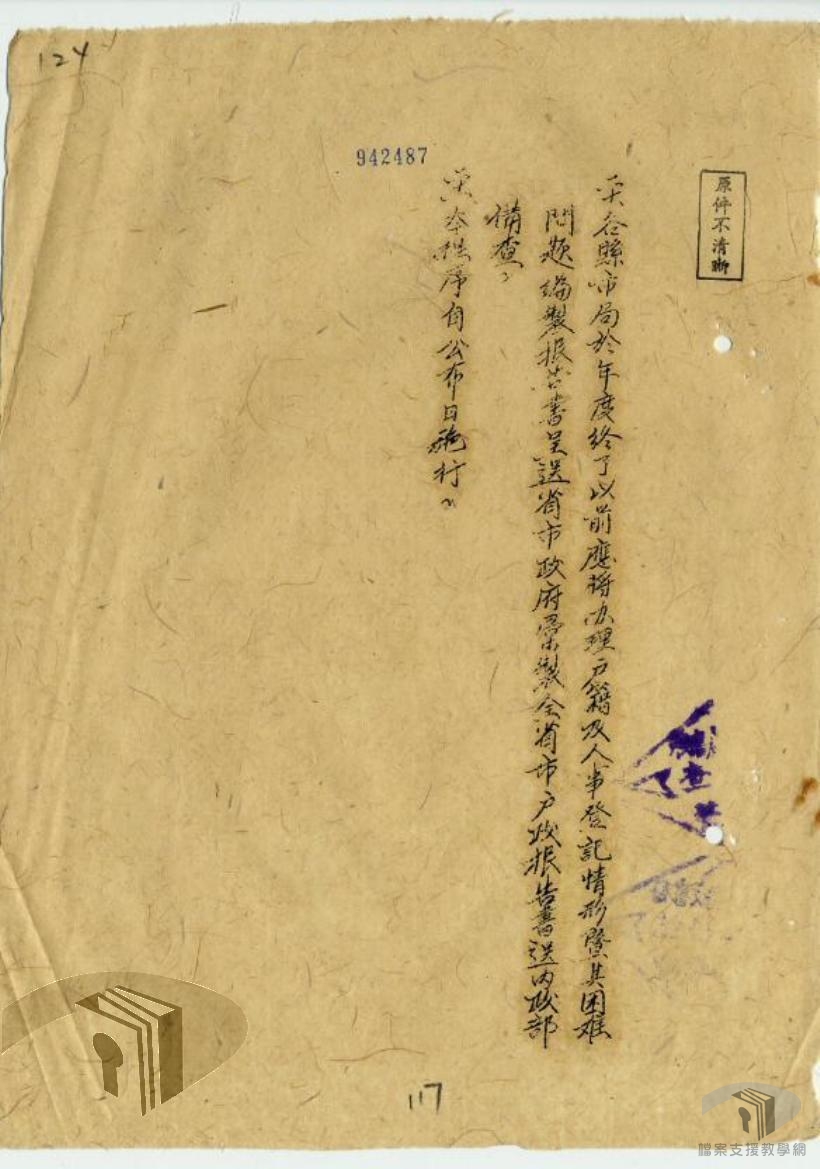 124
942487
原件不清晰
各縣市局於年度終了以前應將办理户籍及人事登記情形暨其困难
問題編製报告書呈送省市政府彙製全省市户政报告書送内政部
備查
本程序自公布日施行
117
檔案支援教學網